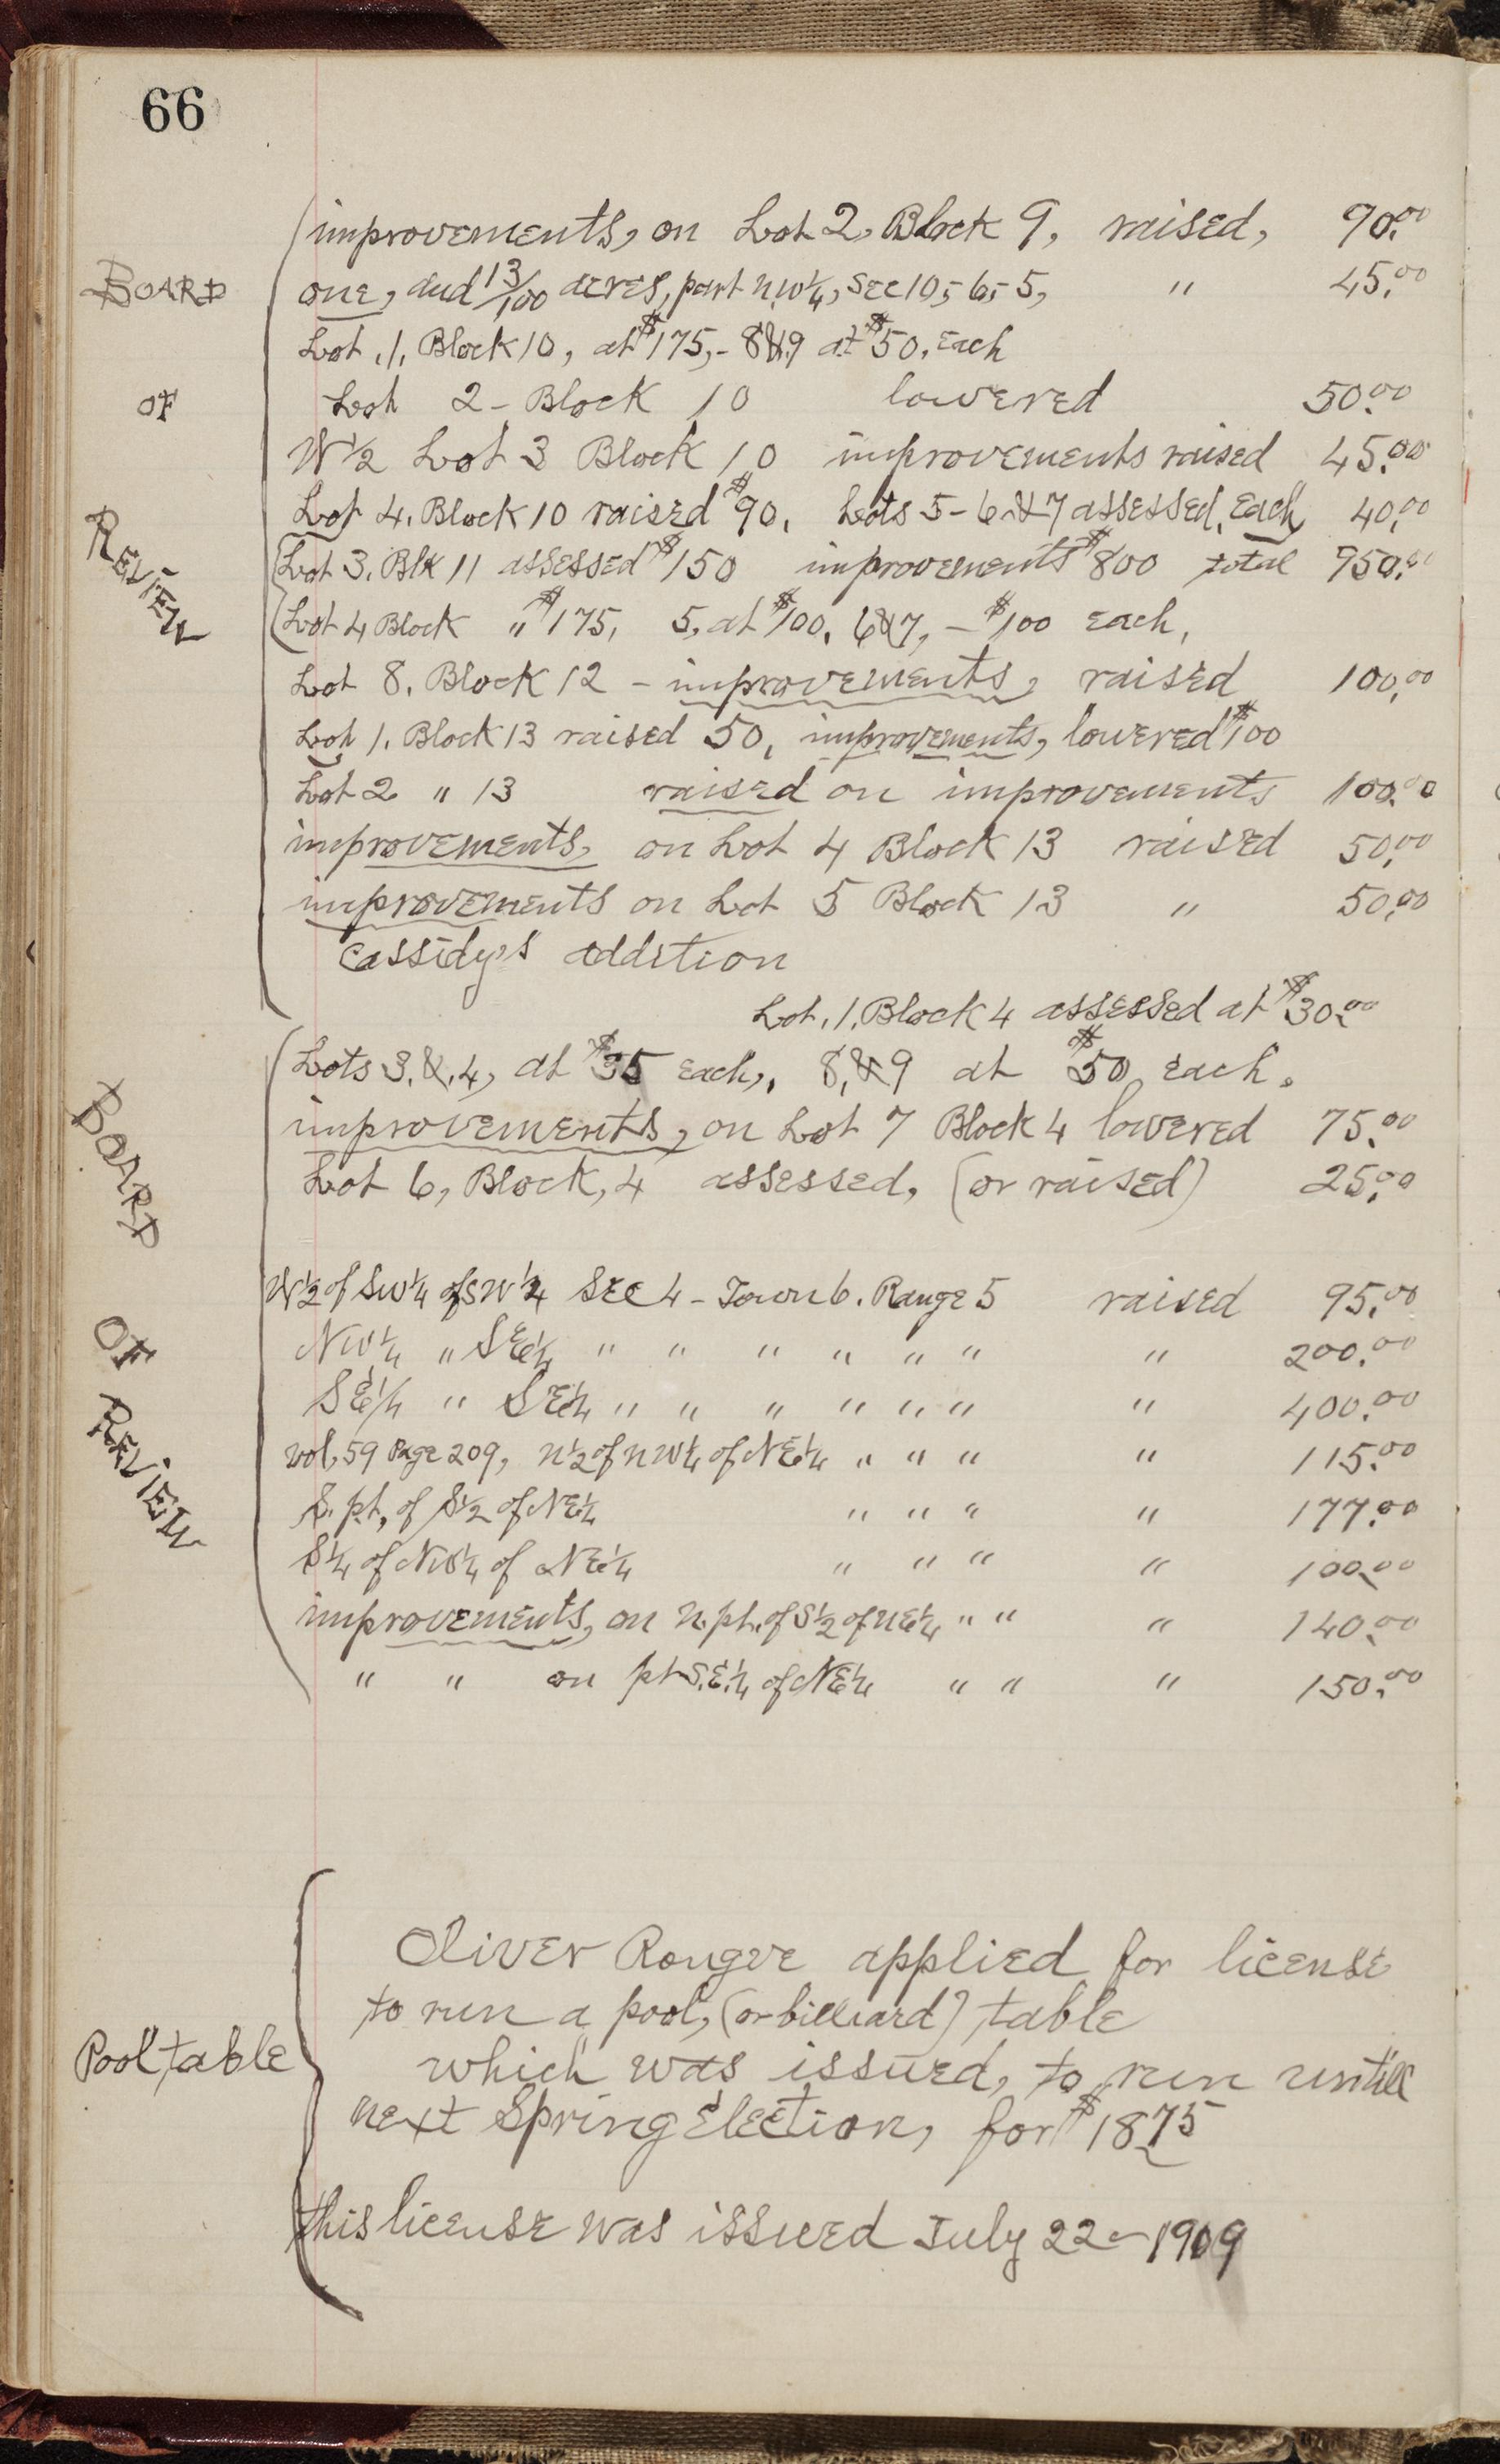 66
improvements, on Lot 2, Block 9, raised, 90.00
BOARD
one, and 13/100 acres, part N.W 1/4, Sec 10,- 6,- 5, " 45.00
Lot, 1, Block 10, at $175,- 8&9 at $50. Each
OF
Lot 2 - Block 10 lowered 50.00
W 1/2 Lot 3 Block 10 improvements raised 45.00
Lot 4, Block 10 raised $90, Lots 5-6&7 assessed, Each, 40.00
REVIEW
Lot 3. Blk 11 assessed $150 improvements $800 total 950.00
Lot 4 Block " $175, 5, at $100, 6&7, - $100 each,
Lot 8, Block 12 - improvements, raised 100.00
Lot 1, Block 13 raised 50, improvements, lowered $100
Lot 2 " 13 raised on improvements 100.00
improvements, on Lot 4 Block 13 raised 50.00
improvements on Lot 5 Block 13 " 50.00
Cassidy's addition
Lot, 1, Block 4 assessed at $30.00
Lots 3, &, 4, at $35 each,, 8, &9 at $50 each.
BOARD
improvements, on Lot 7 Block 4 lowered 75.00
Lot 6, Block, 4 assessed, (or raised) 25.00
W 1/2 of SW 1/4 of SW 1/4 Sec 4 - Town 6. Range 5 raised 95.00
OF
NW 1/4 " SE 1/4 " " " " " " " 200.00
SE 1/4 " SE 1/4 " " " " " " " 400.00
REVIEW
vol, 59 Page 209, N 1/2 of NW 1/4 of NE 1/4 " " " " 115.00
S. pt, of S 1/2 of NE 1/4 " " " " 177.00
S 1/4 of NW 1/4 of NE 1/4 " " " " 100.00
improvements, on N. pt. of S 1/2 of NE 1/4 " " " 140.00
" " on pt S.E. 1/4 of NE 1/4 " " " 150.00
Oliver applied for license
to run a pool, (or billiard) table
Pool table
which was issued, to run untill
next Spring Election, for $18 75
this license was issued July 22 - 1909